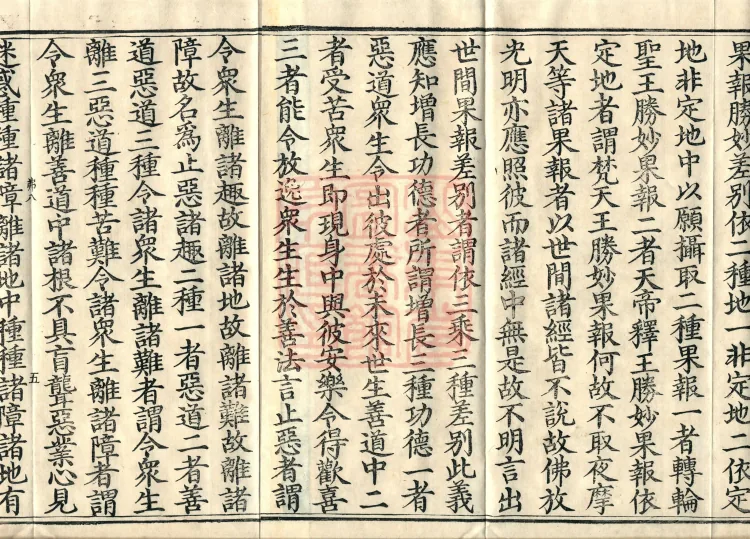 果報勝妙差別依二種地一非定地二依定
地非定地中以願攝取二種果報一者轉輪
聖王勝妙果報二者天帝釋王勝妙果報依
定地者謂梵天王勝妙果報何故不取夜摩
天等諸果報者以世間諸經皆不說故佛放
光明亦應照彼而諸經中無是故不明言出
世間果報差別者謂依三乘三種差別此義
應知增長功德者所謂增長三種功德一者
惡道眾生令出彼處於未來世生善道中二
者受苦眾生即現身中與彼安樂令得歡喜
三者能令放逸眾生生於善法言止惡者謂
令眾生離諸趣故離諸地故離諸難故離諸
障故名為止惡諸趣二種一者惡道二者善
道惡道三種令諸眾生離諸難者謂令眾生
離三惡道種種苦難令諸眾生離諸障者謂
令眾生離善道中諸根不具盲聾惡業心見
弟八
五
迷惑種種諸障離諸地中種種諸障諸地有